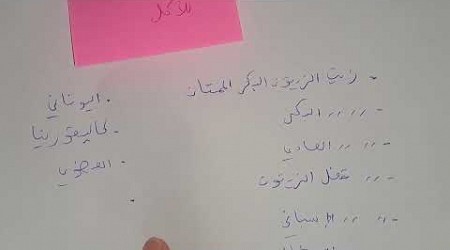 للأكل
- زيت الزيتون البكر الممتاز
- 〃 〃 البكر
- 〃 〃 العادي
- 〃 〃 ثفل الزيتون
- 〃 〃 الإسباني
. اليوناني
. كاليفورنيا
. العضوي
.